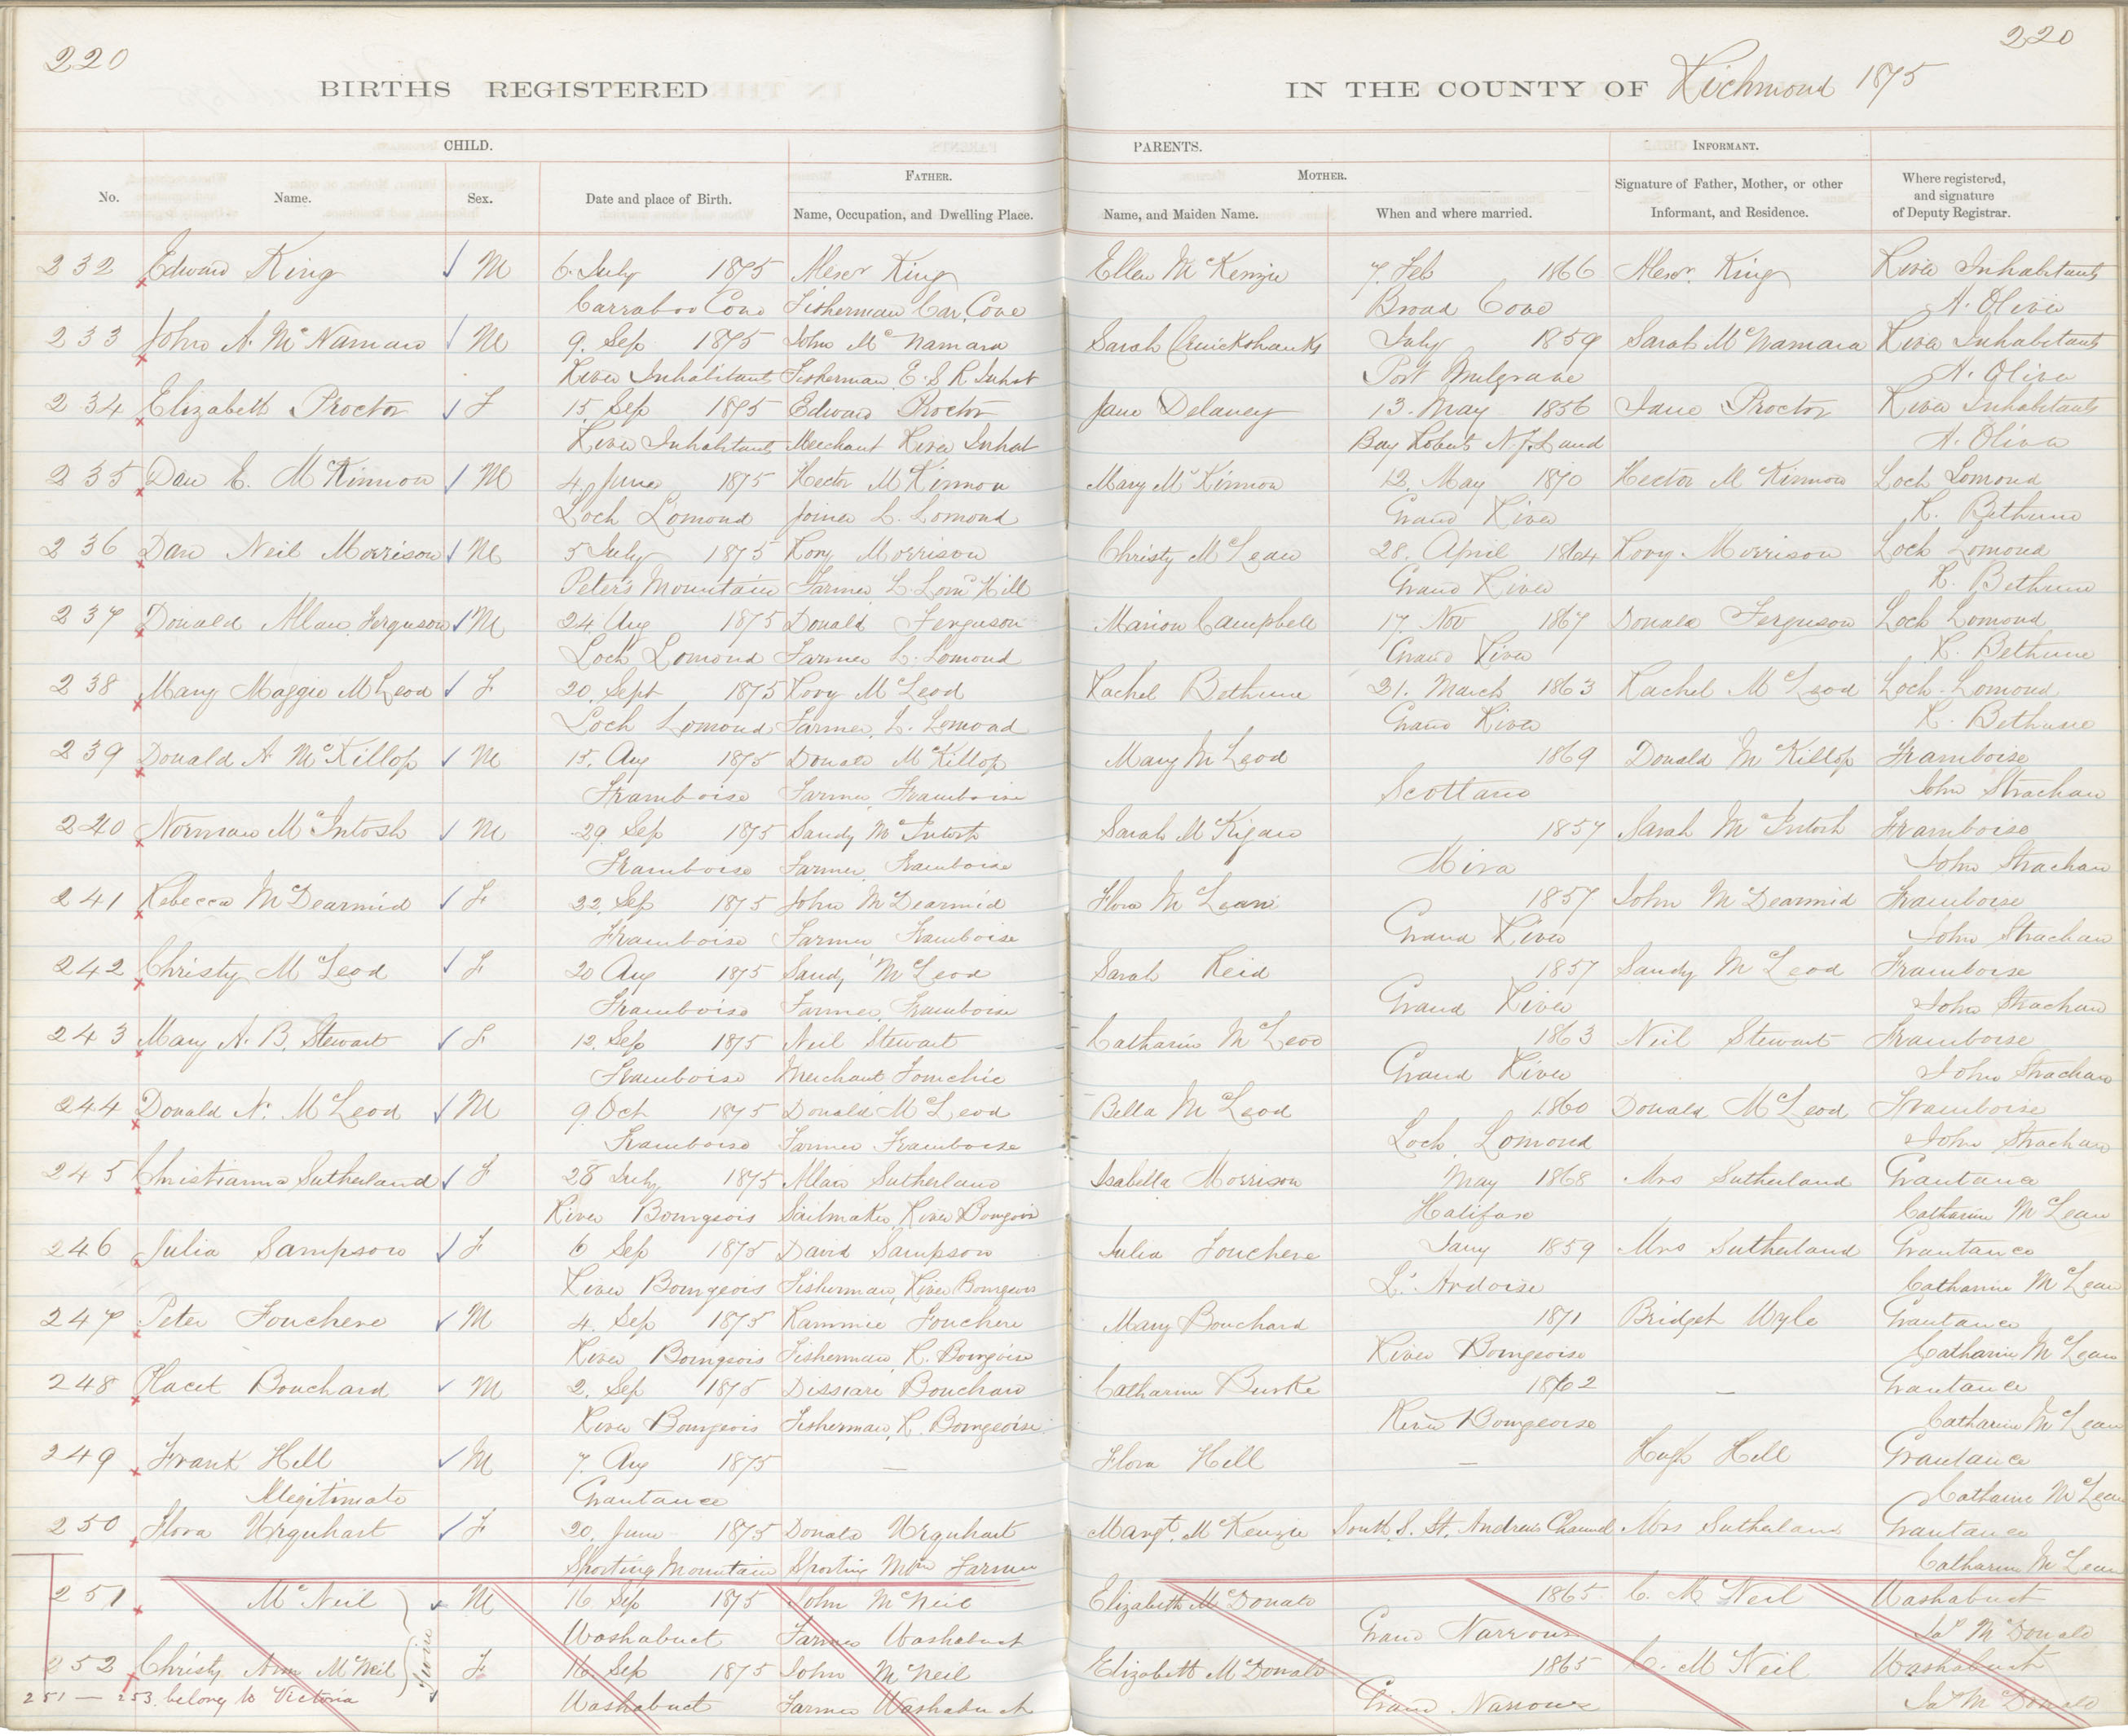 220
220
BIRTHS REGISTERED
IN THE COUNTY OF Richmond 1875
CHILD.
PARENTS.
INFORMANT.
No.
Name.
Sex.
Date and place of Birth.
FATHER.
Name, Occupation, and Dwelling Place.
MOTHER.
Name, and Maiden Name.
When and where married.
Signature of Father, Mother, or other
Informant, and Residence.
Where registered,
and signature
of Deputy Registrar.
232 Edward King M 6. July 1875 Alexr King Ellen McKenzie 7. Feb 1866 Alexr. King River Inhabitants
Carraboo Cove Fisherman Car. Cove Broad Cove A. Oliver
233 John A. McNamara M 9. Sep 1875 John McNamara Sarah Cruickshanks July 1859 Sarah McNamara River Inhabitants
River Inhabitants Fisherman E. S R. Inhat Port Mulgrave A. Oliver
234 Elizabeth Proctor F 15. Sep 1875 Edward Proctor Jane Delaney 13. May 1856 Jane Proctor River Inhabitants
River Inhabitants Merchant River Inhat Bay Roberts N.f.Land A. Oliver
235 Dan E. McKinnon M 4. June 1875 Hector McKinnon Mary McKinnon 12. May 1870 Hector McKinnon Loch Lomond
Loch Lomond Joiner L. Lomond Grand River R. Bethune
236 Dan Neil Morrison M 5 July 1875 Rory Morrison Christy McLean 28. April 1864 Rory Morrison Loch Lomond
Peter's Mountain Farmer L. Lomd Hill Grand River R. Bethune
237 Donald Allan Ferguson M 24 Aug 1875 Donald Ferguson Marion Campbell 17. Nov 1867 Donald Ferguson Loch Lomond
Loch Lomond Farmer L. Lomond Grand River R. Bethune
238 Mary Maggie McLeod F 20. Sept 1875 Rory McLeod Rachel Bethune 21. March 1863 Rachel McLeod Loch Lomond
Loch Lomond Farmer, L. Lomond Grand River R. Bethune
239 Donald A McKillop M 15. Aug 1875 Donald McKillop Mary McLeod 1869 Donald McKillop Framboise
Framboise Farmer, Framboise Scotland John Strachan
240 Norman McIntosh M 29. Sep 1875 Sandy McIntosh Sarah McKigan 1857 Sarah McIntosh Framboise
Framboise Farmer, Framboise Mira John Strachan
241 Rebecca McDearmid F 22. Sep 1875 John McDearmid Flora McLean 1857 John McDearmid Framboise
Framboise Farmer Framboise Grand River John Strachan
242 Christy McLeod F 20 Aug 1875 Sandy McLeod Sarah Reid 1857 Sandy McLeod Framboise
Framboise Farmer, Framboise Grand River John Strachan
243 Mary A. B. Stewart F 12. Sep 1875 Neil Stewart Catharine McLeod 1863 Neil Stewart Framboise
Framboise Merchant Fourchie Grand River John Strachan
244 Donald N. McLeod M 9. Oct 1875 Donald McLeod Bella McLeod 1860 Donald McLeod Framboise
Framboise Farmer Framboise Loch Lomond John Strachan
245 Christianna Sutherland F 28 July 1875 Allan Sutherland Isabella Morrison May 1868 Mrs Sutherland Grantance
River Bourgeois Sailmaker, River Bourgois Halifax Catharine McLean
246 Julia Sampson F 6 Sep 1875 David Sampson Julia Fouchere Jany 1859 Mrs Sutherland Grantance
River Bourgeois Fisherman, River Bourgeois L'Ardoise Catharine McLean
247 Peter Fouchere M 4. Sep 1875 Rammie Fouchere Mary Bouchard 1871 Bridget Wyle Grantance
River Bourgeois Fisherman, R. Bourgoise River Bourgeoise Catharine McLean
248 Placet Bouchard M 2. Sep 1875 Dissiare Bouchard Catharine Burke 1862 — Grantance
River Bourgeois Fisherman, R. Bourgeoise River Bourgeoise Catharine McLean
249 Frank Hill M 7. Aug 1875 — Flora Hill — Hugh Hill Grantance
Illegitimate Grantance Catharine McLean
250 Flora Urquhart F 20. June 1875 Donald Urquhart Margt. McKenzie South S. St. Andrews Channel Mrs Sutherland Grantance
Sporting Mountain Sporting Mtn Farmer Catharine McLean
251 McNeil M 16 Sep 1875 John McNeil Elizabeth McDonald 1865 C. McNeil Washabuct
Twins
Washabuct Farmer Washabuct Grand Narrows Jas McDonald
252 Christy Ann McNeil F 16. Sep 1875 John McNeil Elizabeth McDonald 1865 C. McNeil Washabuct
251 — 253 belong to Victoria Washabuct Farmer Washabuct Grand Narrows Jas McDonald